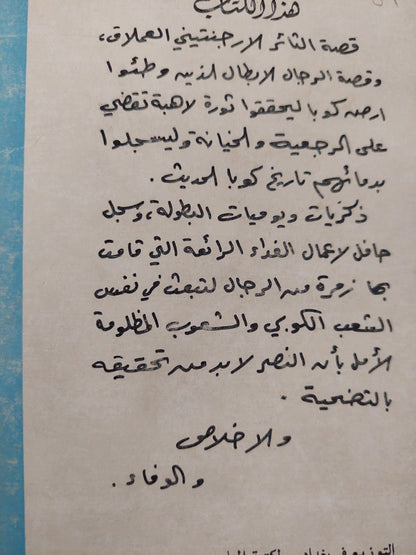 هذا الكتاب
قصة الثائر الارجنتيني العملاق،
وقصة الرجال الابطال الذين وطئوا
ارض كوبا ليحققوا ثورة لاهبة تقضي
على الرجعية والخيانة وليسجلوا
بدمائهم تاريخ كوبا الحديث .
ذكريات ويوميات البطولة، وسجل
حافل لاعمال الفداء الرائعة التي قامت
بها زمرة من الرجال لتبعث في نفس
الشعب الكوبي والشعوب المظلومة
الأمل بأن النصر لابد من تحقيقه
بالتضحية .
والاخلاص
والوفاء .
التوزيع في